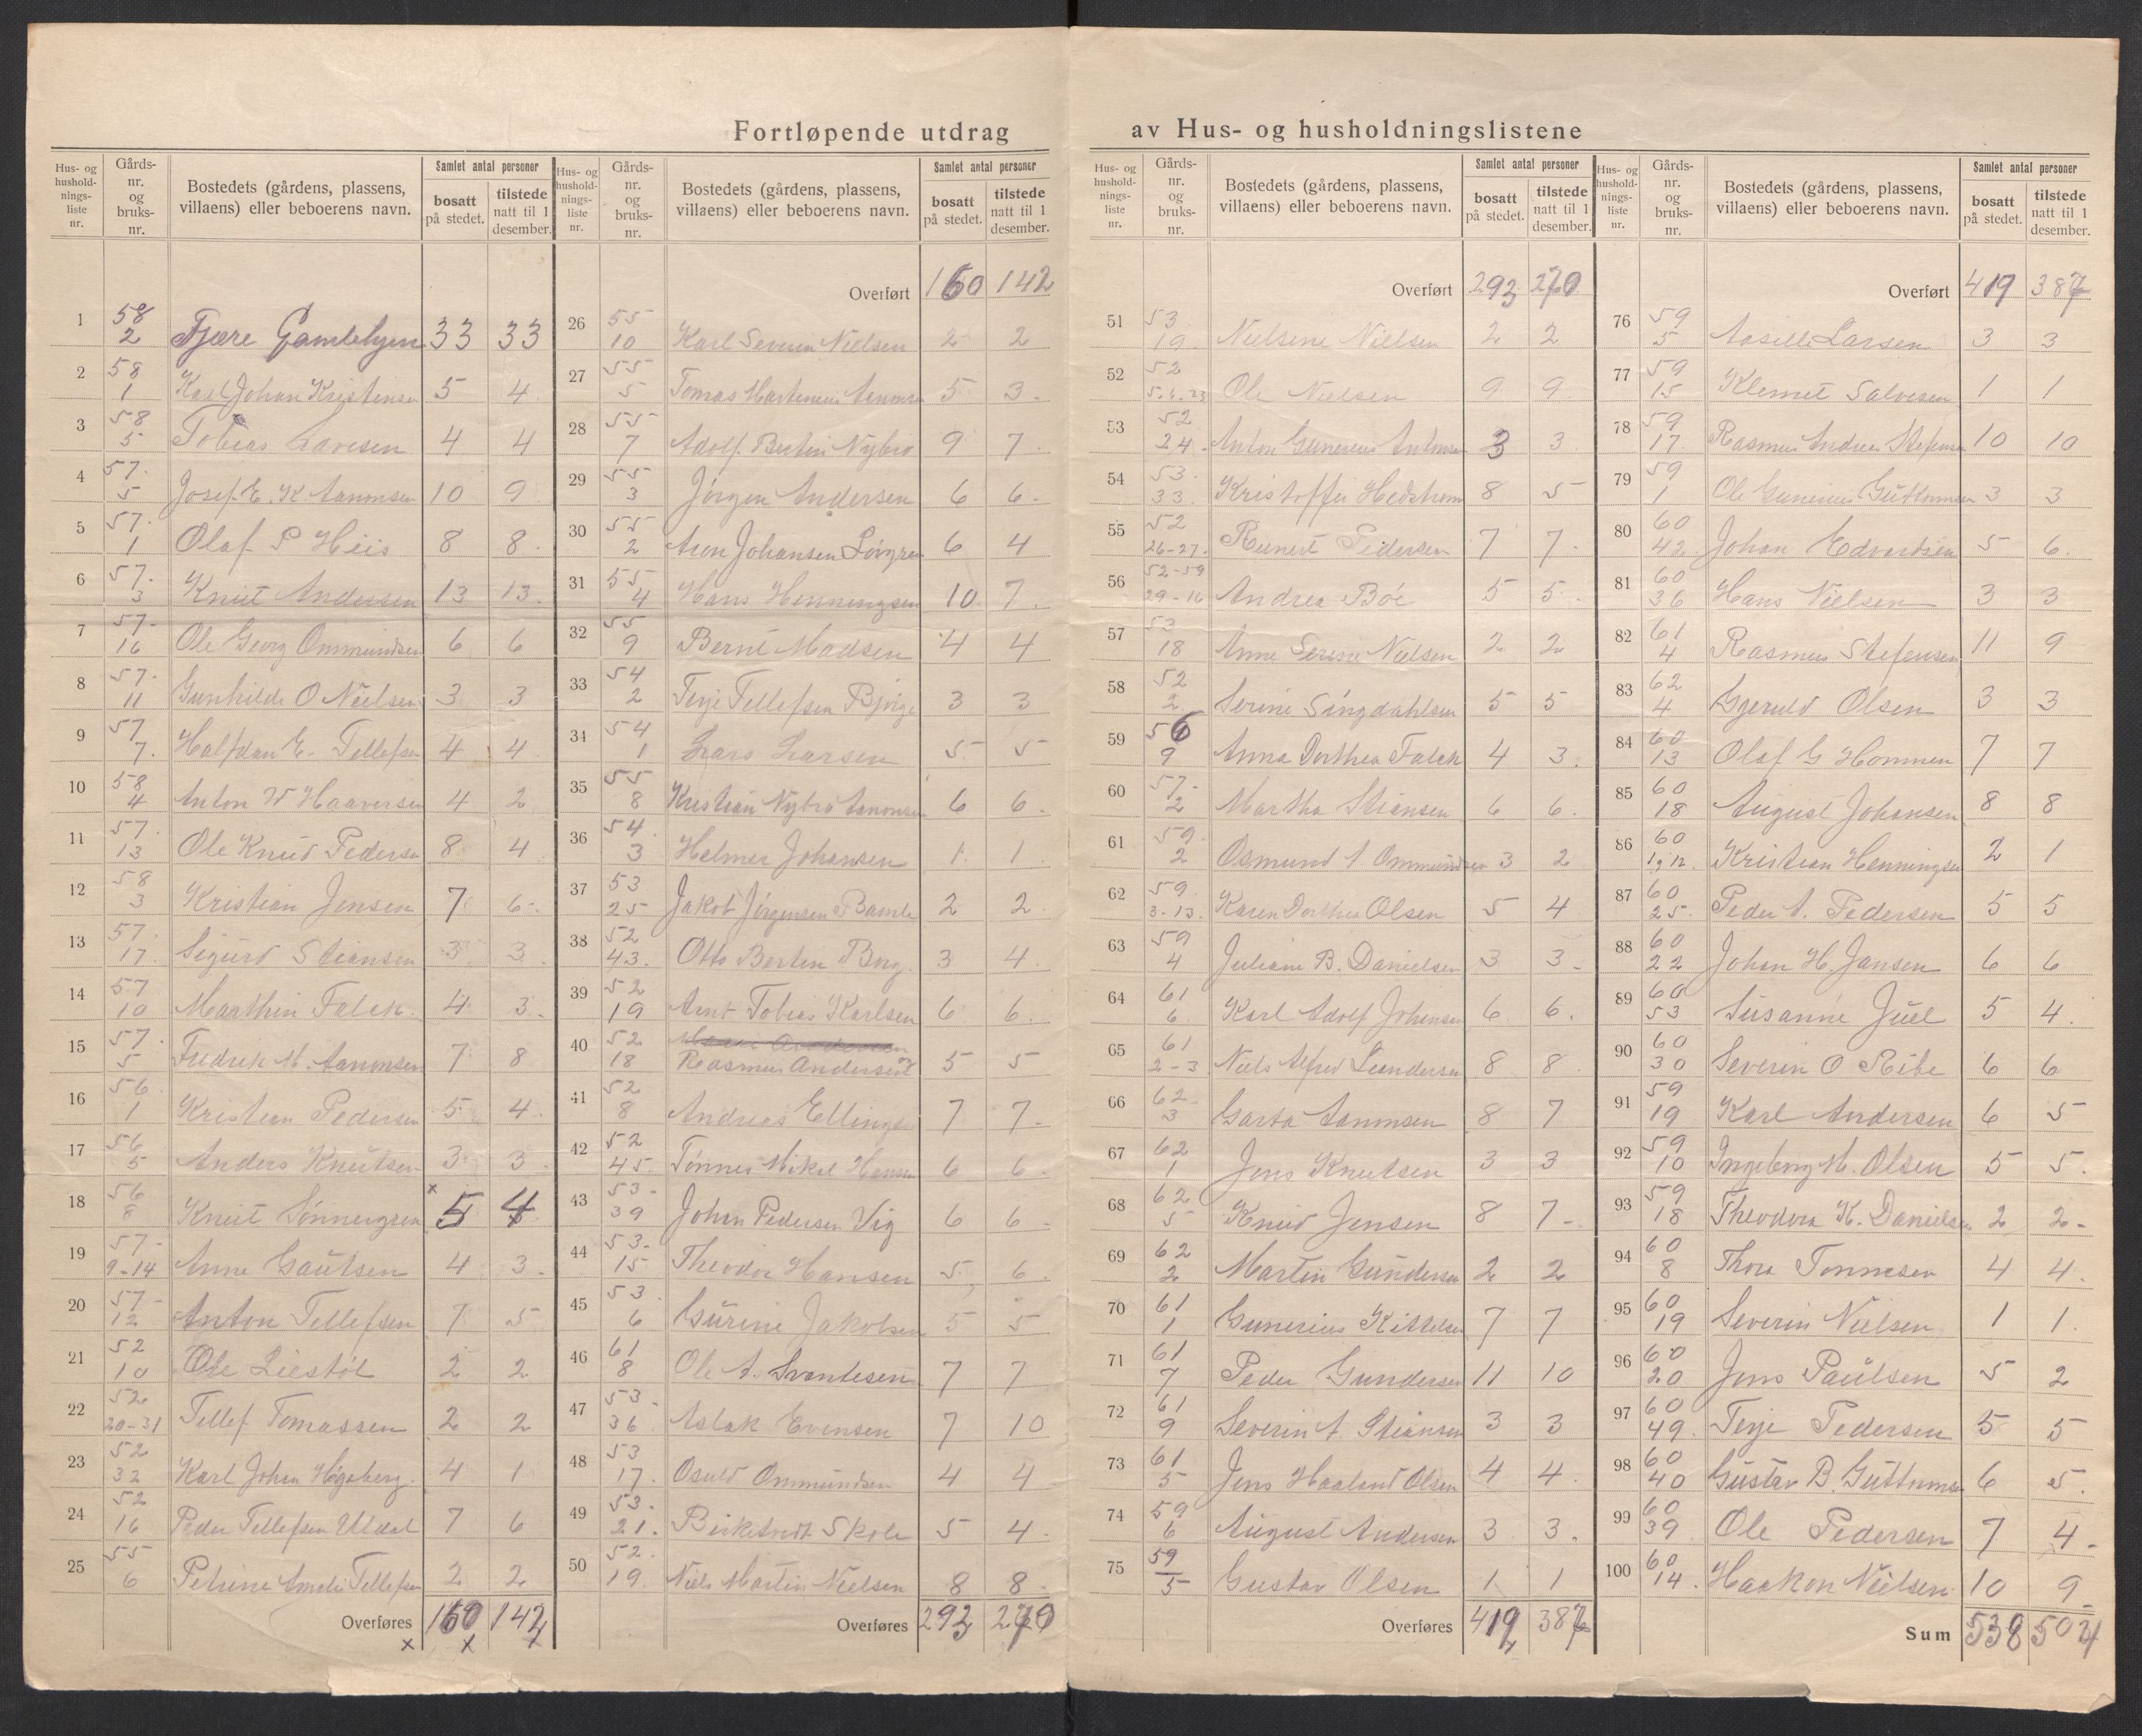 Fortløpende utdrag av Hus- og husholdningslistene
Hus- og husholdnings-liste nr. | Gårds-nr. og bruks-nr. | Bostedets (gårdens, plassens, villaens) eller beboerens navn. | Samlet antal personer | bosatt på stedet. | tilstede natt til 1 desember.
1 58 2 Fjære Gamlehjem 33 33
2 58 1 Karl Johan Kristensen 5 4
3 58 5 Tobias Larsen 4 4
4 57 5 Josef E. K. Aanonsen 10 9
5 57 1 Olaf P Heiis 8 8
6 57 3 Knut Andersen 13 13
7 57 16 Ole Georg Ommundsen 6 6
8 57 11 Gunhilde O Nielsen 3 3
9 57 7 Halfdan E. Tellefsen 4 4
10 58 4 Anton W Haaversen 4 2
11 57 13 Ole Knud Pedersen 8 4
12 58 3 Kristian Jensen 7 6
13 57 17 Sigurd Stiansen 3 3
14 57 10 Marthin Falck 4 3
15 57 5 Fredrik M. Aanonsen 7 8
16 56 1 Kristian Pedersen 5 4
17 56 5 Anders Knutsen 3 3
18 56 8 Knut Sønnergren x 5 4
19 57 9-14 Anne Gautsen 4 3
20 57 12 Anton Tellefsen 7 5
21 52 10 Ole Liestøl 2 2
22 52 20-31 Tellef Tomassen 2 2
23 52 32 Karl Johan Høgeberg 4 1
24 52 16 Peder Tellefsen Uldal 7 6
25 55 6 Petrine Amalie Tellefsen 2 2
Overføres 160 142
x x x
Overført 160 142
26 55 10 Karl Severin Nielsen 2 2
27 55 5 Tomas Martenius Aanonsen 5 3
28 55 7 Adolf Bertin Nybro 9 7
29 55 3 Jørgen Andersen 6 6
30 55 2 Aron Johansen Løvgren 6 4
31 55 4 Hans Henningsen 10 7
32 55 9 Bernt Madsen 4 4
33 54 2 Terje Tellefsen Bjorge 3 3
34 54 1 Lars Larsen 5 5
35 55 8 Kristian Nybro Aanonsen 6 6
36 54 3 Helmer Johansen 1 1
37 53 25 Jakob Jørgensen Bamle 2 2
38 52 43 Otto Bertin Borg 3 4
39 52 19 Arnt Tobias Karlsen 6 6
40 52 18 Rasmus Andersen 5 5
41 52 8 Andreas Ellingsen 7 7
42 52 45 Tønnes Mikal Hansen 6 6
43 53 39 Johan Pedersen Vig 6 6
44 53 15 Theodor Hansen 5 6
45 53 6 Gurine Jakobsen 5 5
46 61 8 Ole A. Svendsen 7 7
47 53 36 Aslak Evensen 7 10
48 53 17 Osuld Ommundsen 4 4
49 53 21 Birketvedt Skole 5 4
50 52 19 Niels Martin Nielsen 8 8
Overføres 293 270
Overført 293 270
51 53 19 Nielsine Nielsen 2 2
52 52 5.6.23 Ole Nielsen 9 9
53 52 24 Anton Gunerius Antonsen 3 3
54 53 33 Kristoffer Hedstrøm 8 5
55 52 26-27 Reinert Pedersen 7 7
56 52-59 29-16 Andrea Bøe 5 5
57 53 18 Anne Serine Nielsen 2 2
58 52 2 Serine Singdahlsen 5 5
59 56 9 Anna Dorthea Falck 4 3
60 57 2 Martha Stiansen 6 6
61 59 2 Osmund A Ommundsen 3 2
62 59 3-13 Karen Dorthea Olsen 5 4
63 59 4 Juliane B. Danielsen 3 3
64 61 6 Karl Adolf Johansen 6 6
65 61 2-3 Niels Alfred Leandersen 8 8
66 62 3 Garta Aanonsen 8 7
67 62 1 Jens Knutsen 3 3
68 62 5 Knud Jensen 8 7
69 62 2 Martin Gundersen 2 2
70 61 1 Gunerius Kittelsen 7 7
71 61 7 Peder Gundersen 11 10
72 61 9 Severin A. Stiansen 3 3
73 61 5 Jens Haaland Olsen 4 4
74 59 6 August Andersen 3 3
75 59 5 Gustav Olsen 1 1
Overføres 419 387
Overført 419 387
76 59 5 Aasille Larsen 3 3
77 59 15 Klemet Salvesen 1 1
78 59 17 Rasmus Andreas Stefensen 10 10
79 59 1 Ole Gunerius Guttormsen 3 3
80 60 42 Johan Edvardsen 5 6
81 60 36 Hans Nielsen 3 3
82 61 4 Rasmus Stefensen 11 9
83 62 4 Gjeruld Olsen 3 3
84 60 13 Olaf G Hommen 7 7
85 60 18 August Johansen 8 8
86 60 Kristian Henningsen 2 1
87 60 25 Peder A. Pedersen 5 5
88 60 22 Johan H. Jansen 6 6
89 60 53 Susanne Juel 5 4
90 60 30 Severin O Ribe 6 6
91 59 19 Karl Andersen 6 5
92 59 10 Ingeborg M. Olsen 5 5
93 59 18 Theodora K. Danielsen 2 2
94 60 8 Thora Tønnesen 4 4
95 60 19 Severin Nielsen 1 1
96 60 20 Jens Paulsen 5 2
97 60 49 Terje Pedersen 5 5
98 60 40 Gustav B. Guttormsen 6 5
99 60 39 Ole Pedersen 7 4
100 60 14 Haakon Nielsen 10 9
Sum 538 504